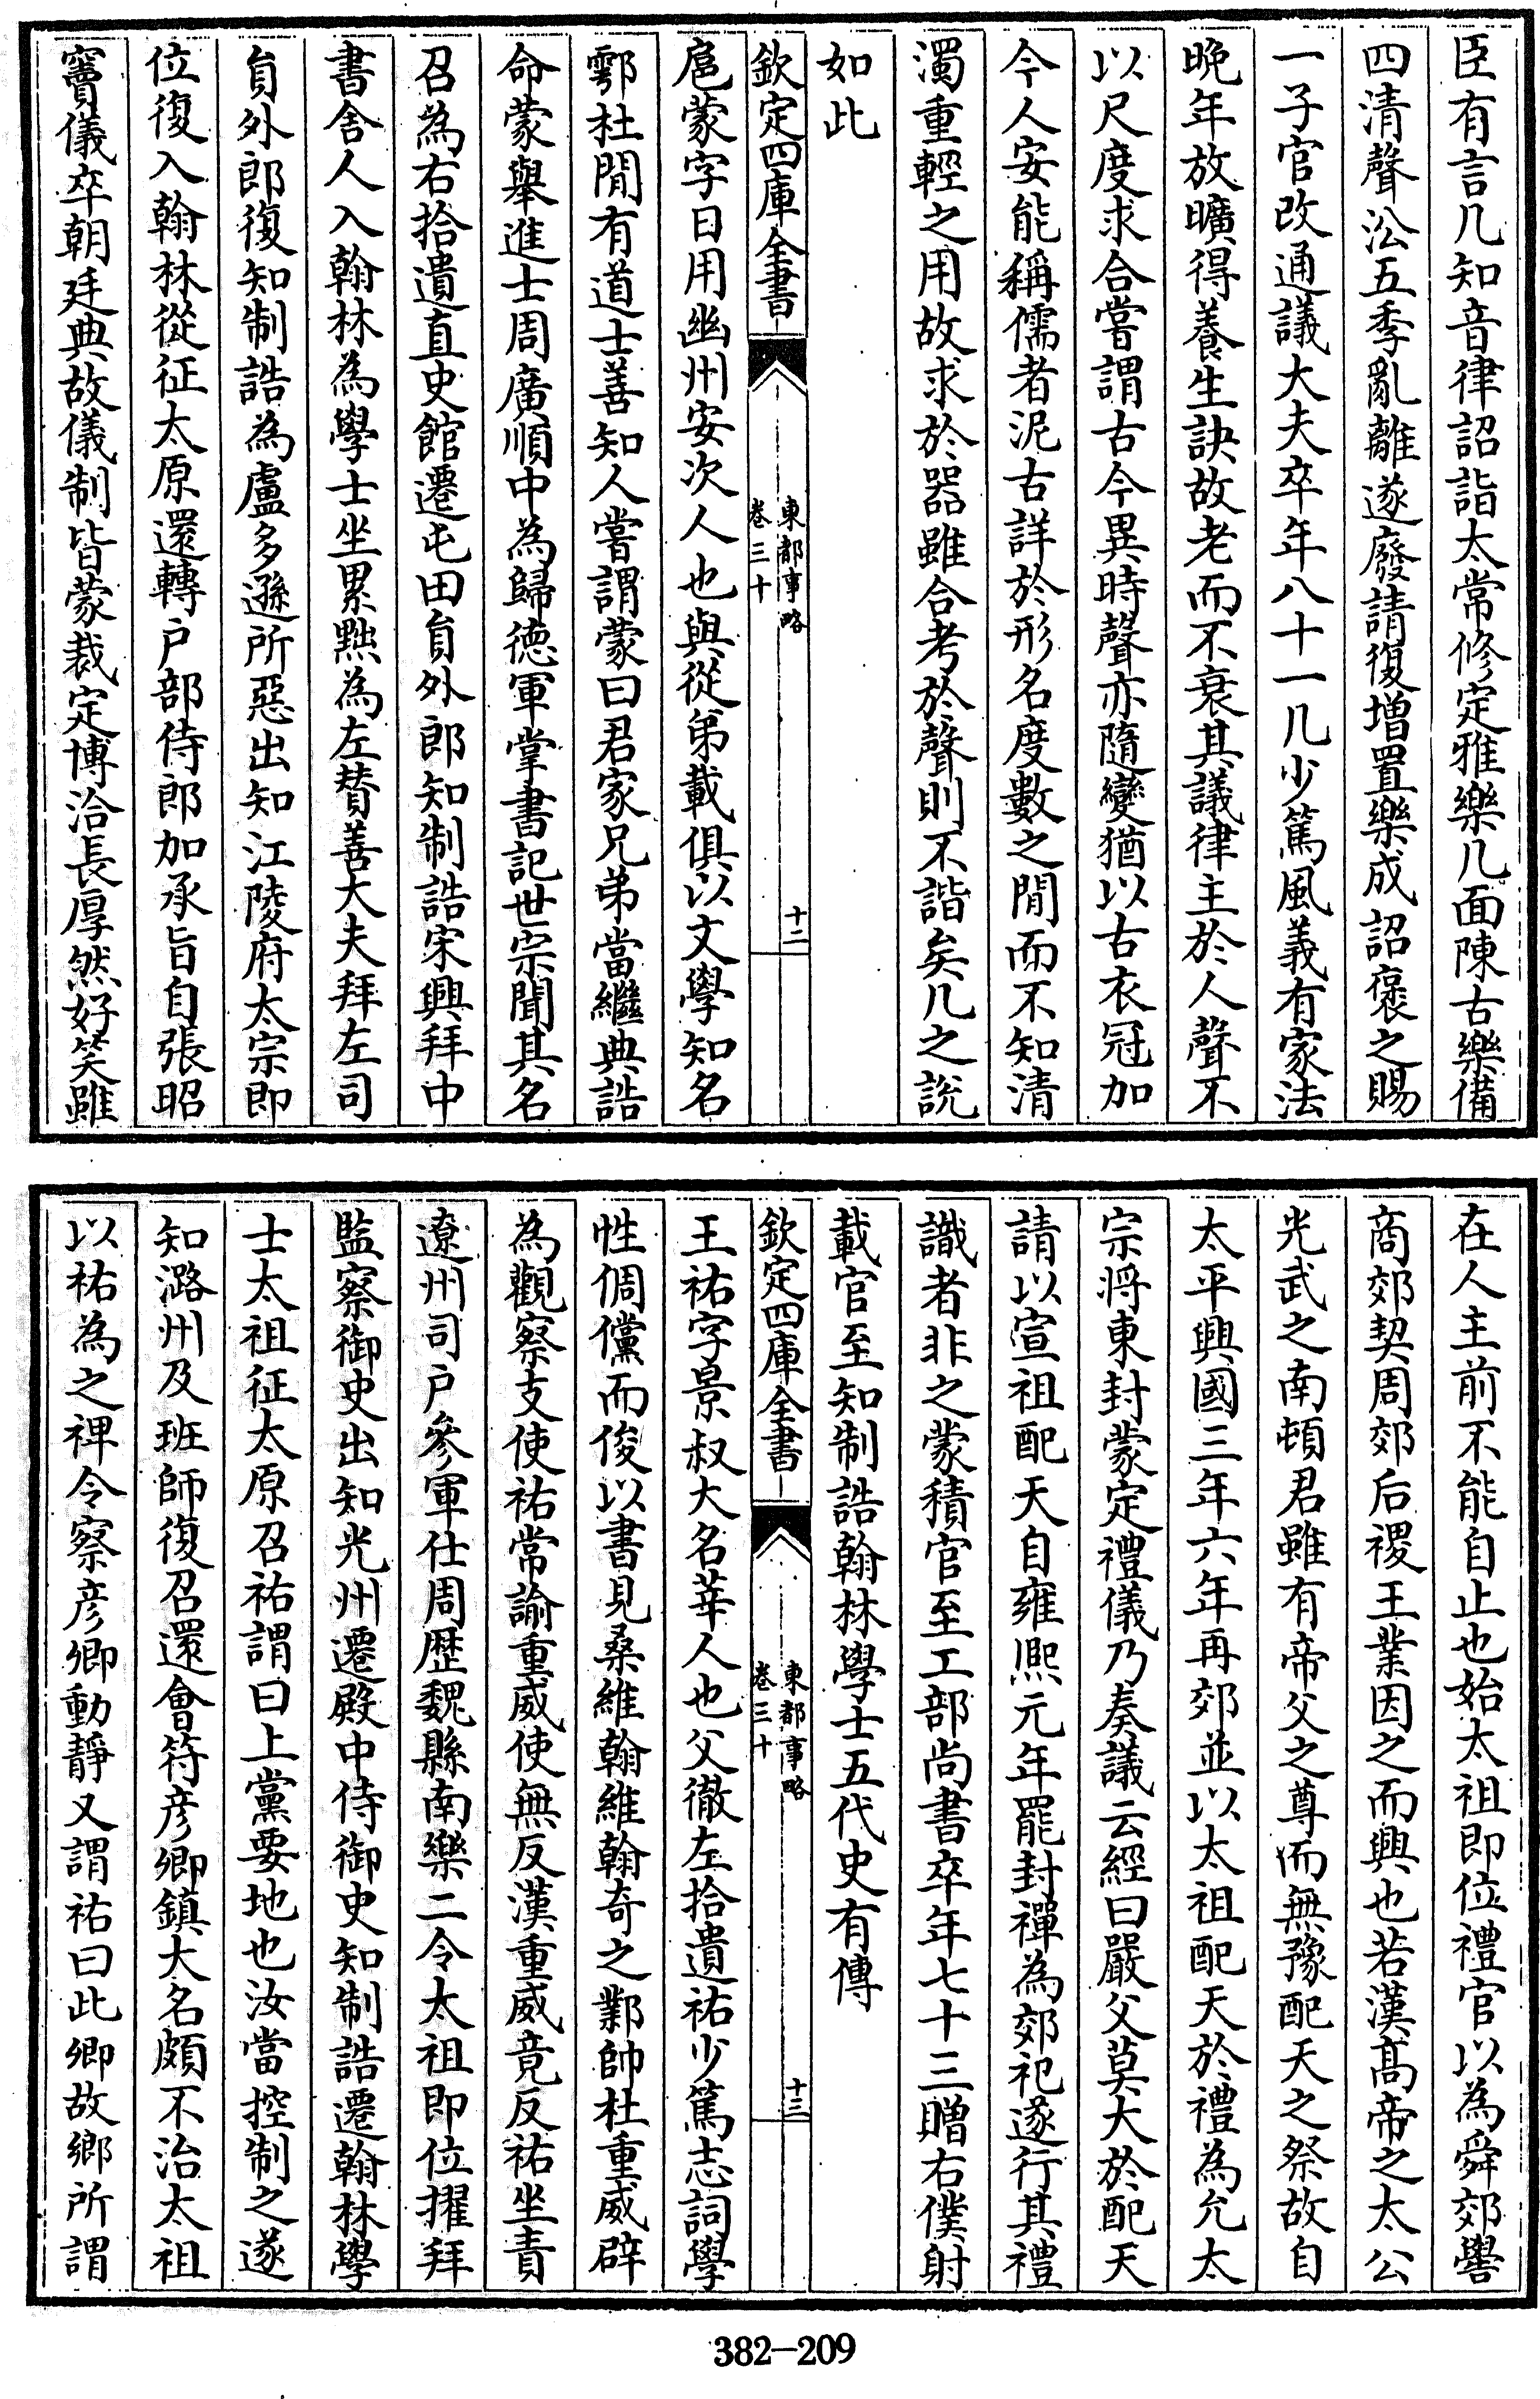 臣有言几知音律詔詣太常修定雅樂几面陳古樂備
四清聲㳂五季亂離遂廢請復增置樂成詔褒之賜
一子官改通議大夫卒年八十一几少篤風義有家法
晚年放曠得養生訣故老而不衰其議律主於人聲不
以尺度求合嘗謂古今異時聲亦隨變猶以古衣冠加
今人安能稱儒者泥古詳於形名度數之間而不知清
濁重輕之用故求於器雖合考於聲則不諧矣几之說
如此
欽定四庫全書 東都事略 卷三十 十二
扈蒙字日用幽州安次人也與從弟載俱以文學知名
鄠杜閒有道士善知人嘗謂蒙曰君家兄弟當繼典誥
命蒙舉進士周廣順中為歸德軍掌書記世宗聞其名
召為右拾遺直史館遷屯田員外郎知制誥宋興拜中
書舍人入翰林為學士坐累黜為左贊善大夫拜左司
員外郎復知制誥為盧多遜所惡出知江陵府太宗即
位復入翰林從征太原還轉戶部侍郎加承旨自張昭
竇儀卒朝廷典故儀制皆蒙裁定博洽長厚然好笑雖
在人主前不能自止也始太祖即位禮官以為舜郊嚳
商郊契周郊后稷王業因之而興也若漢髙帝之太公
光武之南頓君雖有帝父之尊而無豫配天之祭故自
太平興國三年六年再郊並以太祖配天於禮為允太
宗將東封蒙定禮儀乃奏議云經曰嚴父莫大於配天
請以宣祖配天自雍熙元年罷封禪為郊祀遂行其禮
識者非之蒙積官至工部尚書卒年七十三贈右僕射
載官至知制誥翰林學士五代史有傳
欽定四庫全書 東都事略 卷三十 十三
王祐字景叔大名莘人也父徹左拾遺祐少篤志詞學
性倜儻而俊以書見桑維翰維翰奇之鄴帥杜重威辟
為觀察支使祐常諭重威使無反漢重威竟反祐坐責
遼州司戶參軍仕周歴魏縣南樂二令太祖即位擢拜
監察御史出知光州遷殿中侍御史知制誥遷翰林學
士太祖征太原召祐謂曰上黨要地也汝當控制之遂
知潞州及班師復召還會符彦卿鎮大名頗不治太祖
以祐為之禆令察彦卿動靜又謂祐曰此卿故鄉所謂
382-209